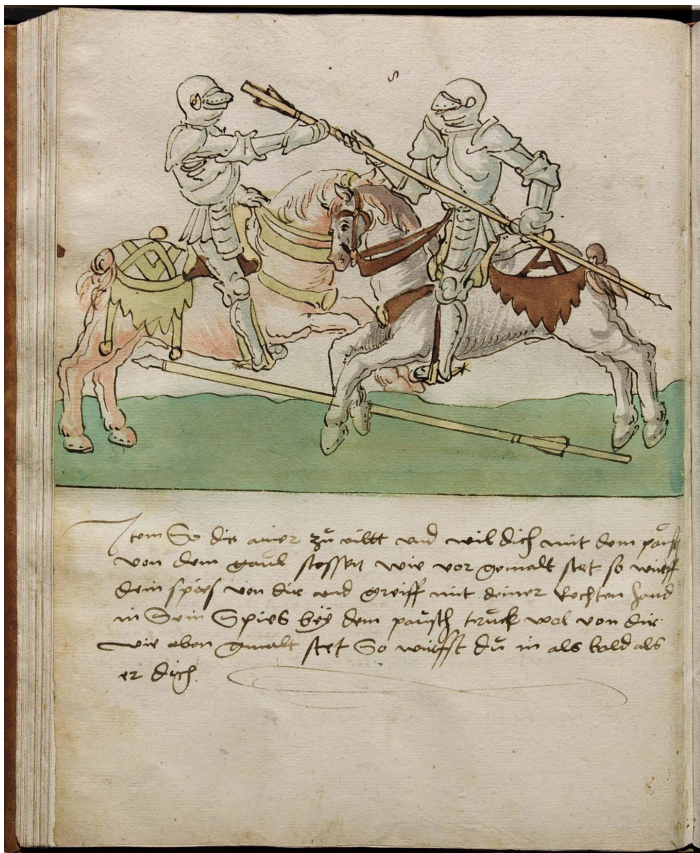 Item So dir ainer zu rillt und wil dich mit dem paüsch
von dem gaul stossen wie vor gemalt stet so würff
dein spies von dir und greiff mit deiner Rechten hand
in Sein Spies beÿ dem paüsch truck wol von dir
wie oben gmalt stet So würffst du in als bald als
er dich